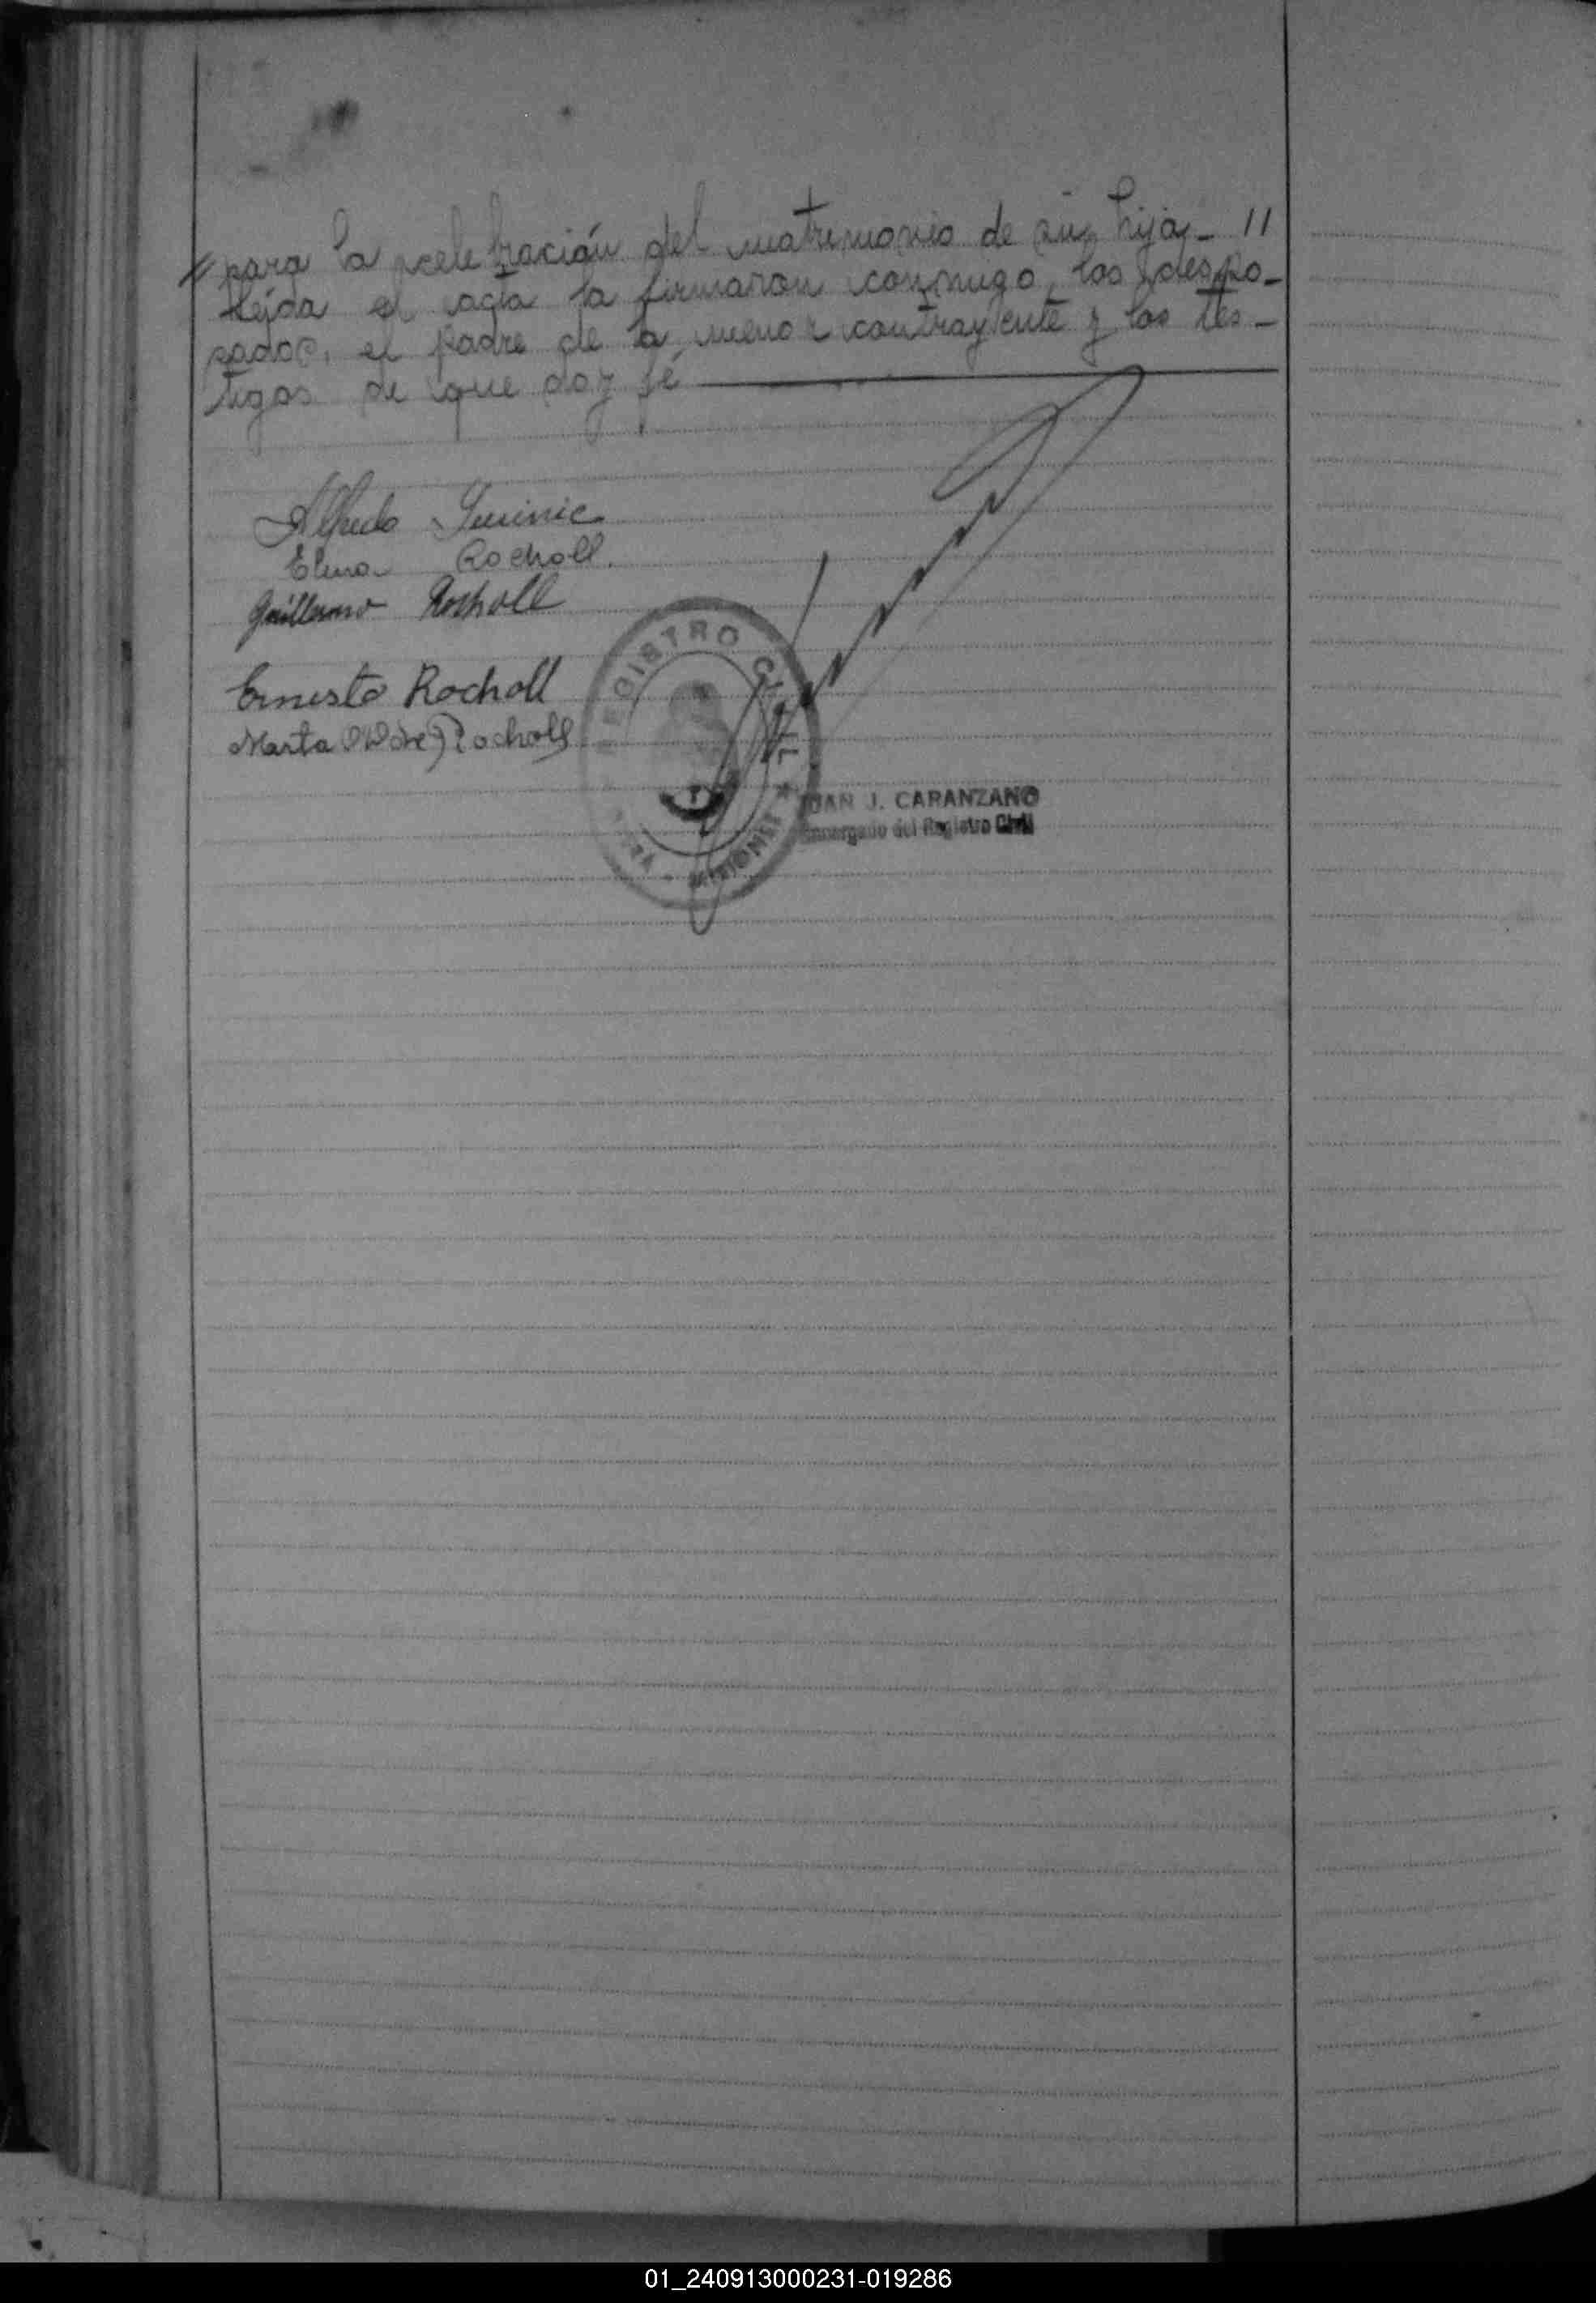 para la celebración del matrimonio de su hija - //
Leída el acta la firmaron conmigo, los despo-
sados, el padre de la menor contrayente y los tes-
tigos de que doy fé
Alfredo
Elena Rocholl.
Guillermo Rocholl
Ernesto Rocholl
Marta Rocholl
REGISTRO CIVIL
MISIONES
JUAN J. CARANZANO
Encargado del Registro Civil
01_240913000231-019286